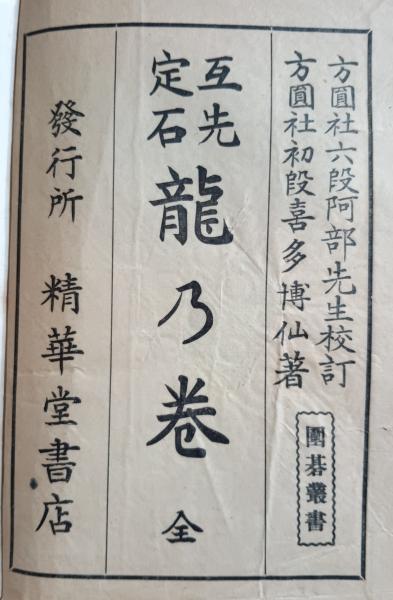 方圓社六段阿部先生校訂
方圓社初段喜多博仙著
圍碁叢書
互先
定石
龍乃卷 全
發行所 精華堂書店